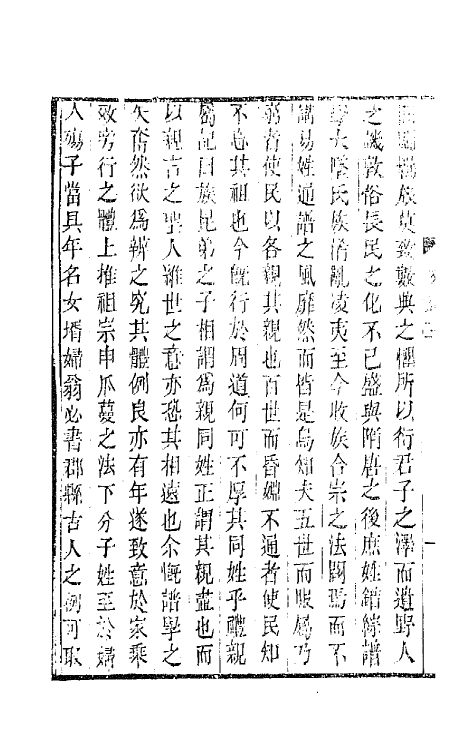 族莫致數典之懼所以衍君子之澤而遺野人
之譏敦俗長民之化不已盛與隋唐之後庶姓錯綜譜
學大隳氏族淆亂凌夷至今收族合宗之法闕焉而不
講易姓通譜之風靡然而皆是烏知夫五世而服屬乃
窮者使民以各親其親也百世而昏姻不通者使民知
不忘其祖也今旣行於周道何可不厚其同姓乎禮親
屬記曰族昆弟之子相謂爲親同姓正謂其親盡也而
以親言之聖人維世之意亦恐其相遠也余慨譜學之
失奮然欲爲辨之究其體例良亦有年遂致意於家乘
效旁行之體上推祖宗申瓜蔓之法下分子姓至於婦
人殤子當具年名女壻婦翁必書郡縣古人之例可取